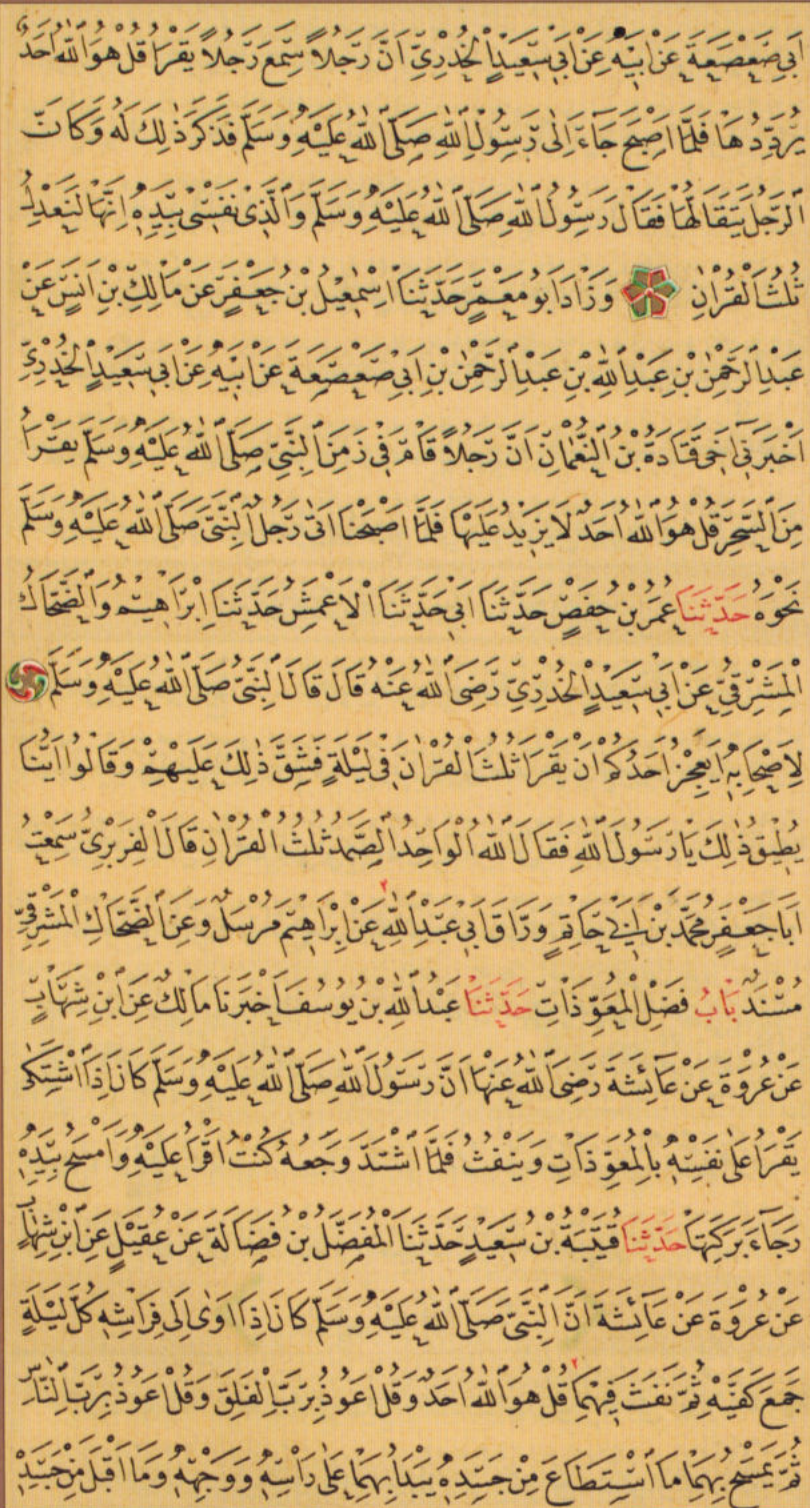 اَبِي صَعْصَعَةَ عَنْ اَبِيهِ عَنْ اَبِي سَعِيدٍ الْخُدْرِيِّ اَنَّ رَجُلًا سَمِعَ رَجُلًا يَقْرَأُ قُلْ هُوَ اللّٰهُ اَحَدٌ
يُرَدِّدُهَا فَلَمَّا اَصْبَحَ جَاءَ اِلٰى رَسُولِ اللّٰهِ صَلَّى اللّٰهُ عَلَيْهِ وَسَلَّمَ فَذَكَرَ ذٰلِكَ لَهُ وَكَاَنَّ
الرَّجُلَ يَتَقَالُّهَا فَقَالَ رَسُولُ اللّٰهِ صَلَّى اللّٰهُ عَلَيْهِ وَسَلَّمَ وَالَّذِي نَفْسِي بِيَدِهِ اِنَّهَا لَتَعْدِلُ
ثُلُثَ الْقُرْاٰنِ وَزَادَ اَبُو مَعْمَرٍ حَدَّثَنَا اِسْمٰعِيلُ بْنُ جَعْفَرٍ عَنْ مَالِكِ بْنِ اَنَسٍ عَنْ
عَبْدِ الرَّحْمٰنِ بْنِ عَبْدِ اللّٰهِ بْنِ عَبْدِ الرَّحْمٰنِ بْنِ اَبِي صَعْصَعَةَ عَنْ اَبِيهِ عَنْ اَبِي سَعِيدٍ الْخُدْرِيِّ
اَخْبَرَنِي اَخِي قَتَادَةُ بْنُ النُّعْمَانِ اَنَّ رَجُلًا قَامَ فِي زَمَنِ النَّبِيِّ صَلَّى اللّٰهُ عَلَيْهِ وَسَلَّمَ يَقْرَأُ
مِنَ السَّحَرِ قُلْ هُوَ اللّٰهُ اَحَدٌ لَا يَزِيدُ عَلَيْهَا فَلَمَّا اَصْبَحْنَا اَتٰى رَجُلٌ النَّبِيَّ صَلَّى اللّٰهُ عَلَيْهِ وَسَلَّمَ
نَحْوَهُ حَدَّثَنَا عُمَرُ بْنُ حَفْصٍ حَدَّثَنَا اَبِي حَدَّثَنَا الْاَعْمَشُ حَدَّثَنَا اِبْرَاهِيمُ وَالضَّحَّاكُ
الْمِشْرَقِيُّ عَنْ اَبِي سَعِيدٍ الْخُدْرِيِّ رَضِيَ اللّٰهُ عَنْهُ قَالَ قَالَ النَّبِيُّ صَلَّى اللّٰهُ عَلَيْهِ وَسَلَّمَ
لِاَصْحَابِهِ اَيَعْجِزُ اَحَدُكُمْ اَنْ يَقْرَأَ ثُلُثَ الْقُرْاٰنِ فِي لَيْلَةٍ فَشَقَّ ذٰلِكَ عَلَيْهِمْ وَقَالُوا اَيُّنَا
يُطِيقُ ذٰلِكَ يَا رَسُولَ اللّٰهِ فَقَالَ اللّٰهُ الْوَاحِدُ الصَّمَدُ ثُلُثُ الْقُرْاٰنِ قَالَ الْفِرَبْرِيُّ سَمِعْتُ
اَبَا جَعْفَرٍ مُحَمَّدَ بْنَ اَبِي حَاتِمٍ وَرَّاقَ اَبِي عَبْدِ اللّٰهِ عَنْ اِبْرَاهِيمَ مُرْسَلٌ وَعَنِ الضَّحَّاكِ الْمِشْرَقِيِّ
مُسْنَدٌ بَابُ فَضْلِ الْمُعَوِّذَاتِ حَدَّثَنَا عَبْدُ اللّٰهِ بْنُ يُوسُفَ اَخْبَرَنَا مَالِكٌ عَنِ ابْنِ شِهَابٍ
عَنْ عُرْوَةَ عَنْ عَائِشَةَ رَضِيَ اللّٰهُ عَنْهَا اَنَّ رَسُولَ اللّٰهِ صَلَّى اللّٰهُ عَلَيْهِ وَسَلَّمَ كَانَ اِذَا اشْتَكٰى
يَقْرَأُ عَلٰى نَفْسِهِ بِالْمُعَوِّذَاتِ وَيَنْفُثُ فَلَمَّا اشْتَدَّ وَجَعُهُ كُنْتُ اَقْرَأُ عَلَيْهِ وَاَمْسَحُ بِيَدِهِ
رَجَاءَ بَرَكَتِهَا حَدَّثَنَا قُتَيْبَةُ بْنُ سَعِيدٍ حَدَّثَنَا الْمُفَضَّلُ بْنُ فَضَالَةَ عَنْ عُقَيْلٍ عَنِ ابْنِ شِهَابٍ
عَنْ عُرْوَةَ عَنْ عَائِشَةَ اَنَّ النَّبِيَّ صَلَّى اللّٰهُ عَلَيْهِ وَسَلَّمَ كَانَ اِذَا اَوٰى اِلٰى فِرَاشِهِ كُلَّ لَيْلَةٍ
جَمَعَ كَفَّيْهِ ثُمَّ نَفَثَ فِيهِمَا قُلْ هُوَ اللّٰهُ اَحَدٌ وَقُلْ اَعُوذُ بِرَبِّ الْفَلَقِ وَقُلْ اَعُوذُ بِرَبِّ النَّاسِ
ثُمَّ يَمْسَحُ بِهِمَا مَا اسْتَطَاعَ مِنْ جَسَدِهِ يَبْدَأُ بِهِمَا عَلٰى رَأْسِهِ وَوَجْهِهِ وَمَا اَقْبَلَ مِنْ جَسَدِهِ